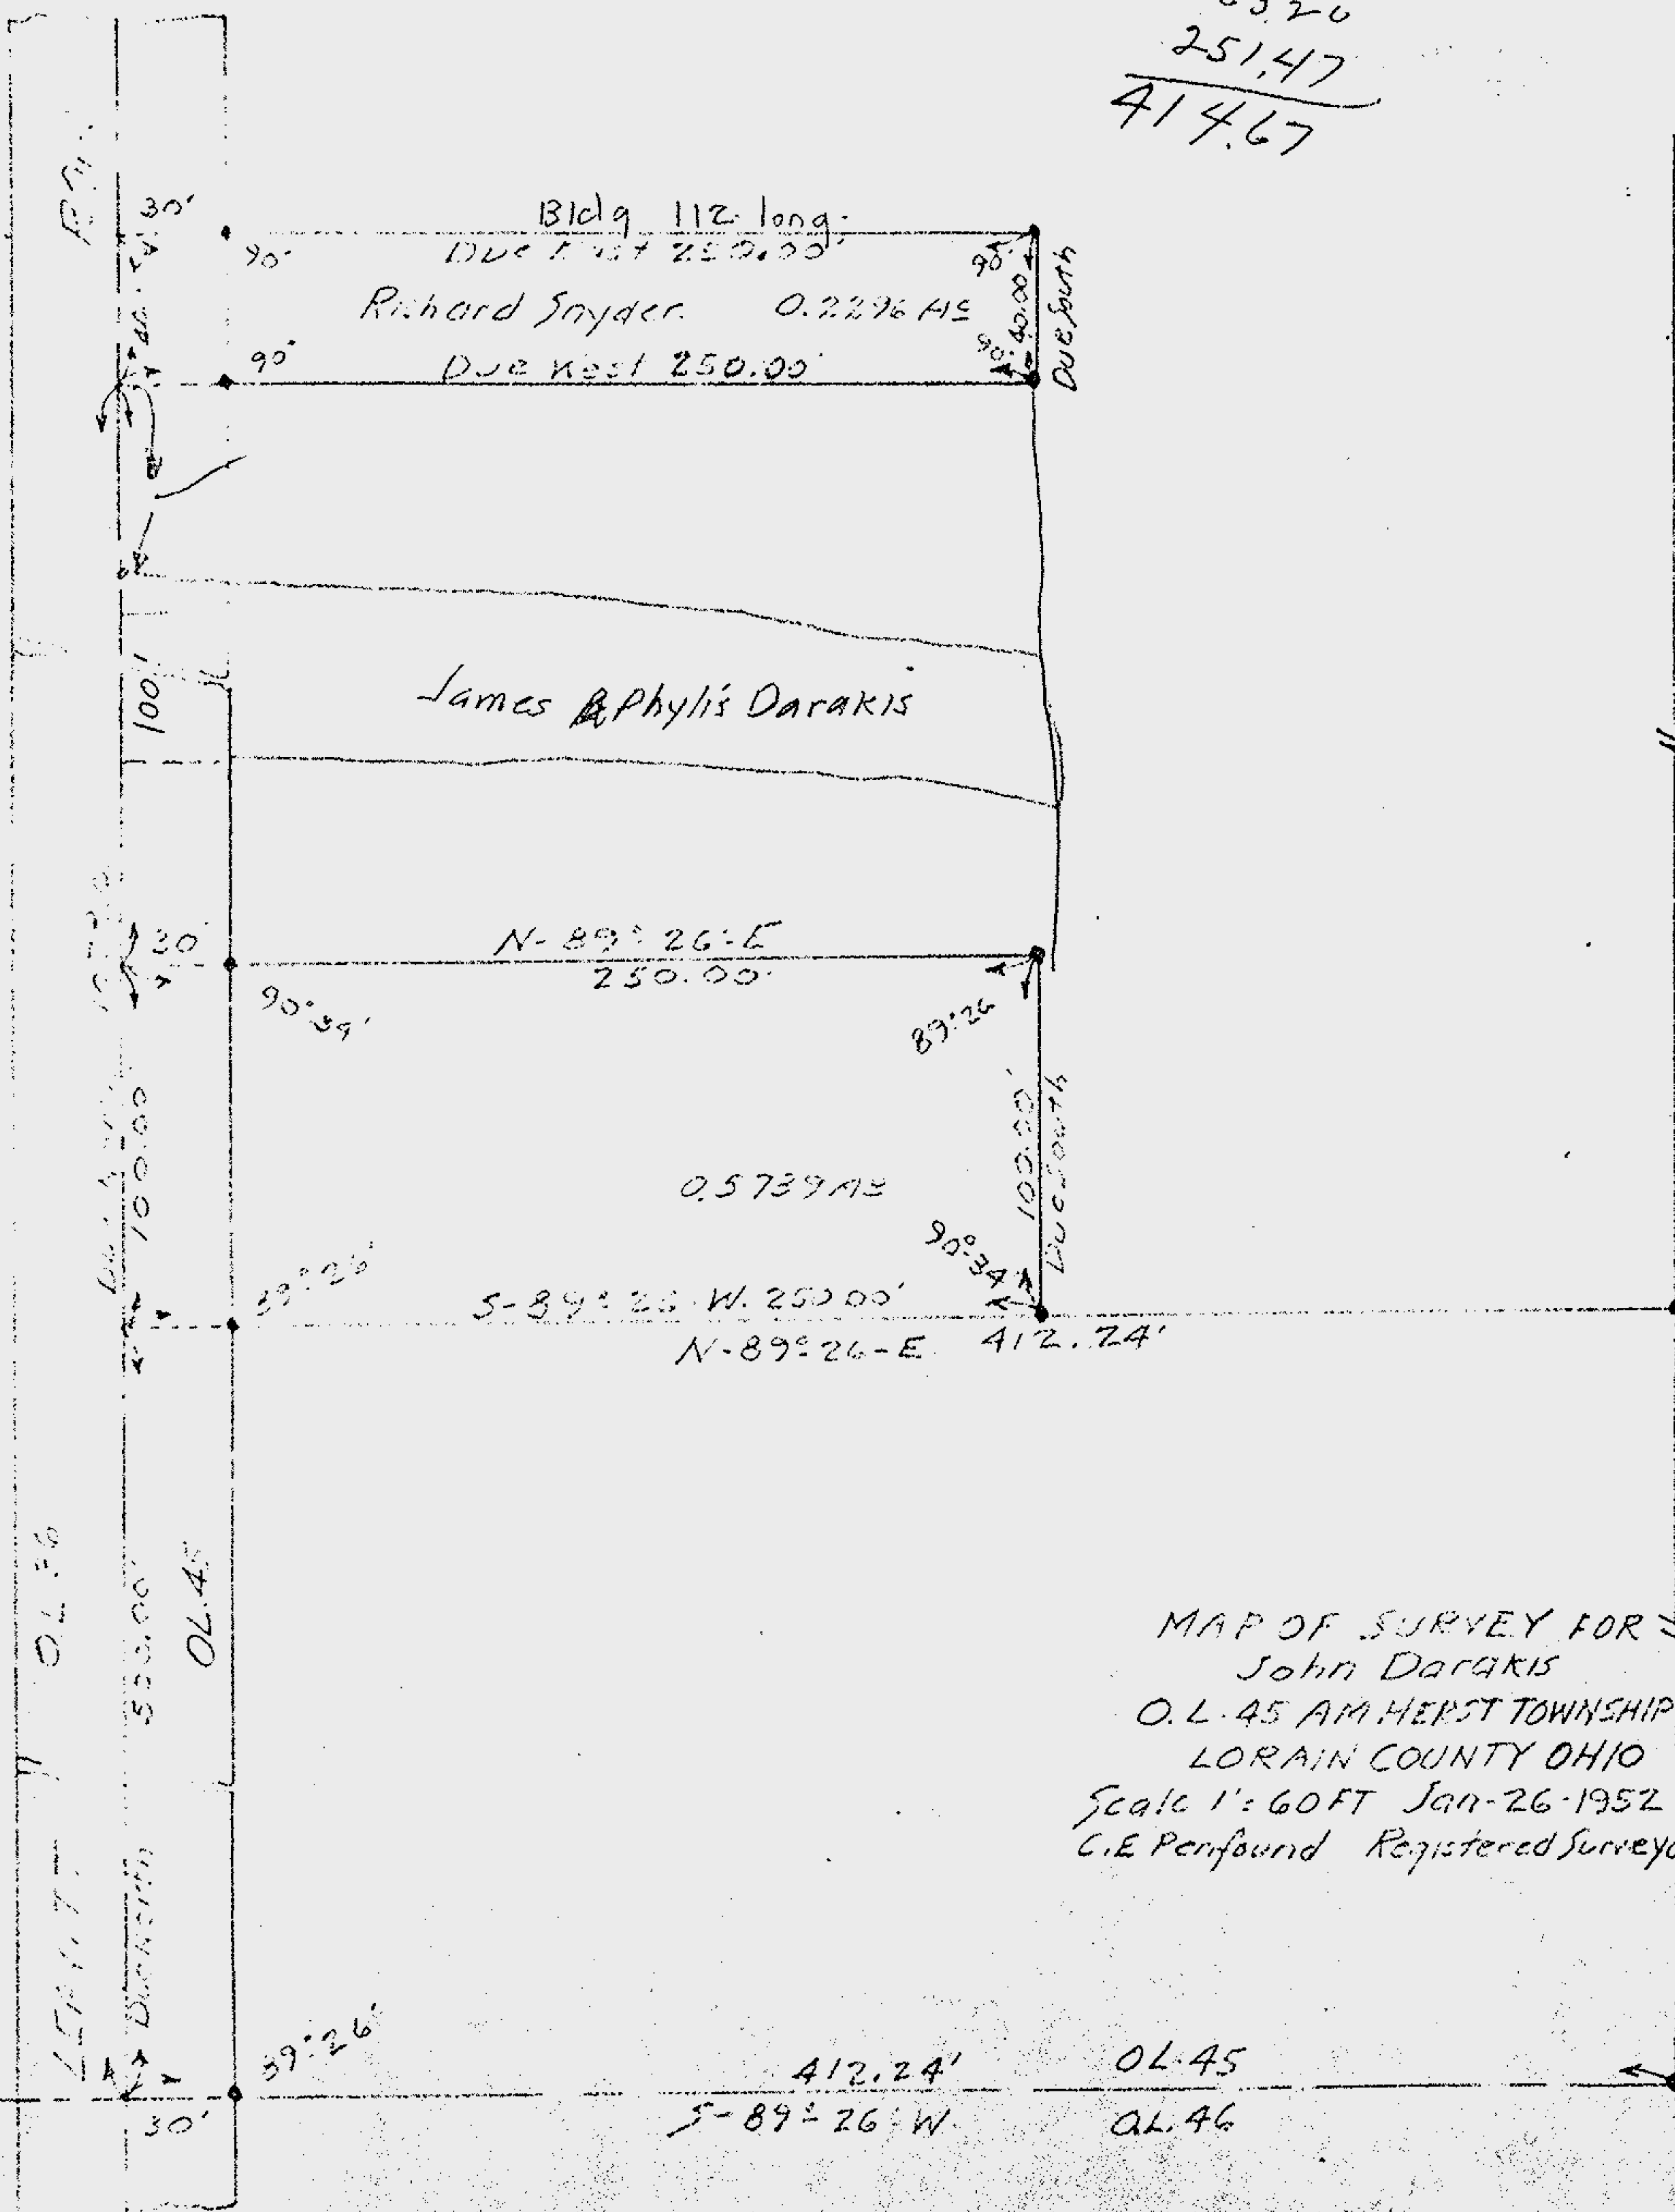 251.47
414.67
30'
Bldg 112 long.
Due East 250.00'
90°
90°
Richard Snyder 0.2296 As
60.00
Due South
90°
90°
Due West 250.00'
100'
James & Phylis Darakis
30'
N-89°26'-E
250.00'
90°34'
89°26
100.00
100.00'
Due South
0.5739 As
90°34'
89°26'
S-89°26'-W. 250.00'
N-89°26-E 412.24'
O.L. 36
OL.45
Due North
MAP OF SURVEY FOR
John Darakis
O.L. 45 AMHERST TOWNSHIP
LORAIN COUNTY OHIO
Scale 1": 60 FT Jan-26-1952
C.E Penfound Registered Surveyo
89°26'
412.24' OL.45
30' S-89°26'W. OL.46